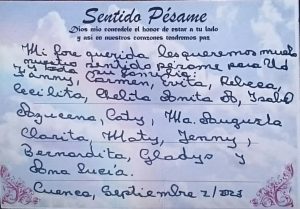 Sentido Pésame
Dios mio concedele el honor de estar a tu lado
y así en nuestros corazones tendremos paz
Mi fore querida les queremos mucho
nuestro sentido pésame para Ud
y toda su familia:
Fanny, Carmen, Evita, Rebeca,
Cecilita, Chelita Anita A, Isabel
Azucena, Caty, Ma. Augusta
Clarita, Maty, Jenny,
Bernardita, Gladys y
Ana Lucía.
Cuenca, Septiembre 2/2023